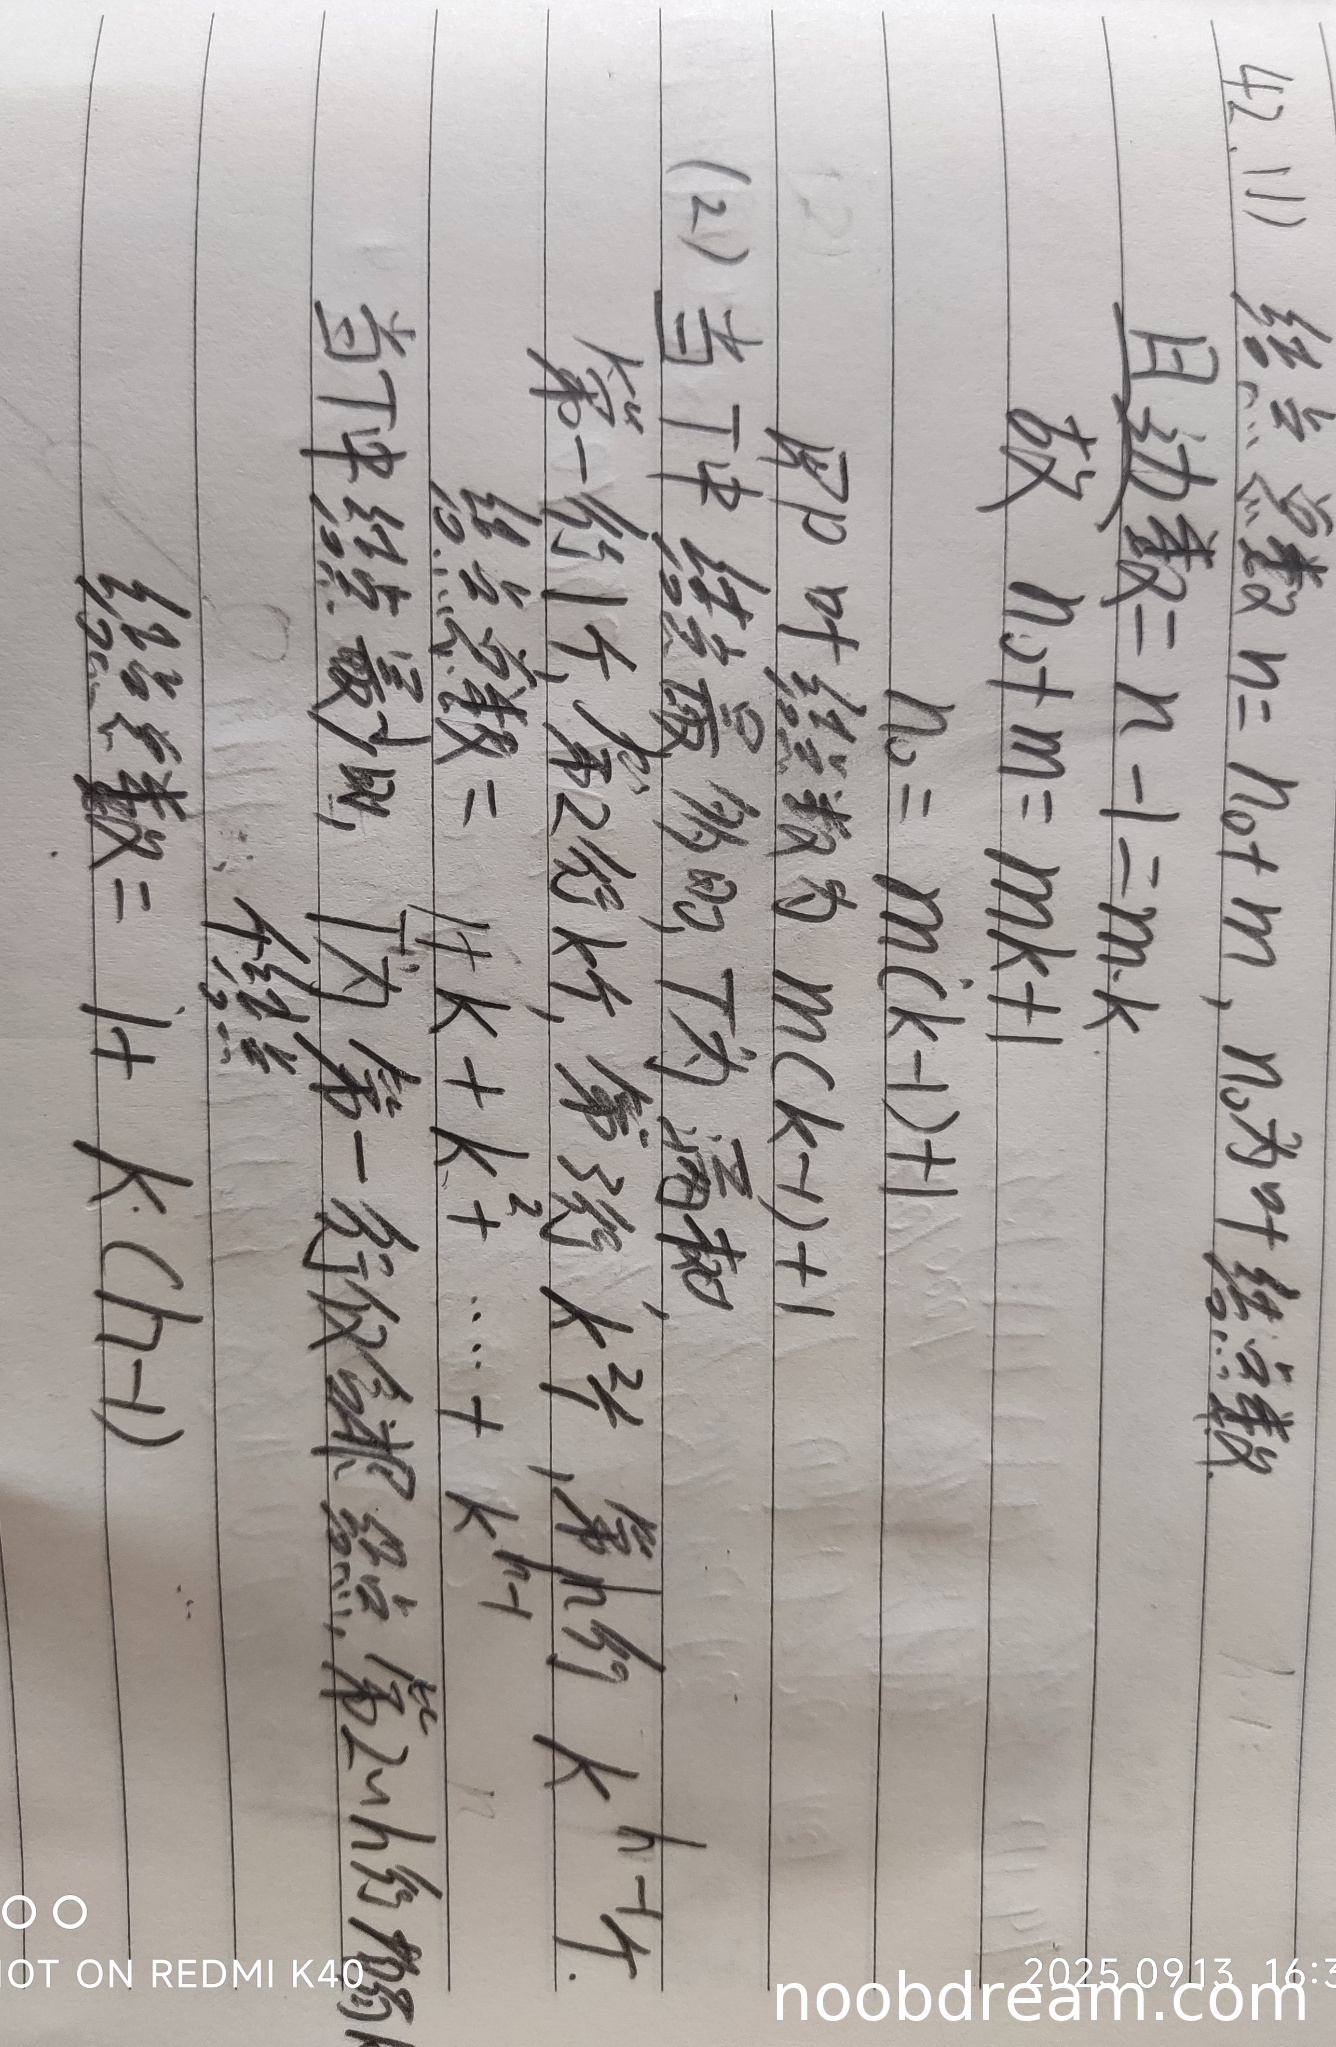 42.(1) 结点总数n=n₀+m, n₀为叶结点数
且边数=n-1=m·k
故 n₀+m=mk+1
n₀=m(k-1)+1
即叶结点数为 m(k-1)+1
(2) 当T中结点最多时, T为满树,
第一行1个, 第2行k个, 第3行 k²个, 第h行 k^(h-1)个.
结点总数= 1+k+k²+…+k^(h-1)
当T中结点最少时, T为第一行仅根结点, 第2~h行均为k
个结点
结点总数= 1+k(h-1)
SHOT ON REDMI K40
2025 0913 16:3
noobdream.com